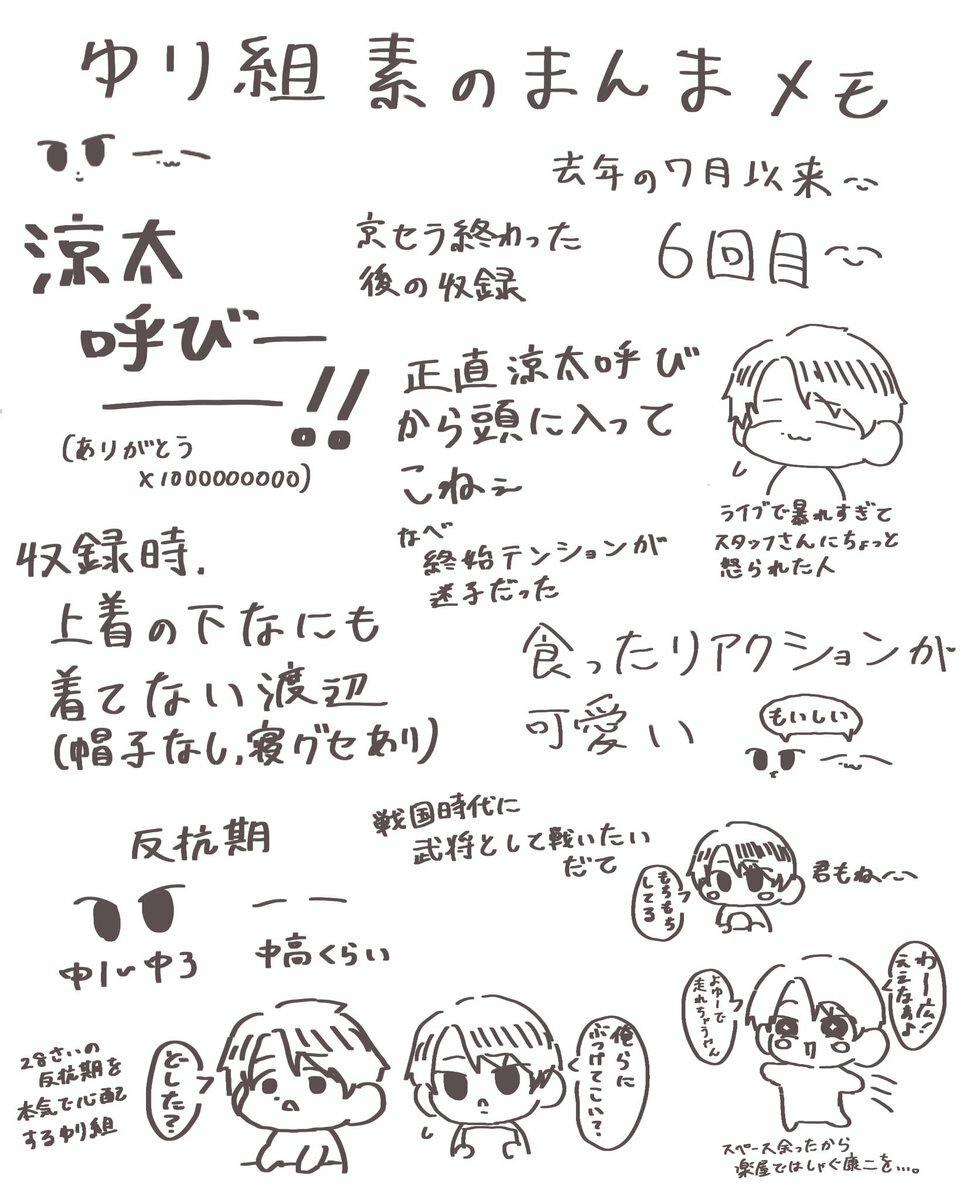 ゆり組 素のまんま メモ
去年の7月以来
6回目
京セラ終わった
後の収録
涼太
呼びー
ー!!
(ありがとう
×1000000000)
正直涼太呼び
から頭に入って
こねぇ
なべ
終始テンションが
迷子だった
ライブで暴れすぎて
スタッフさんにちょっと
怒られた人
収録時.
上着の下なにも
着てない渡辺
(帽子なし,寝グセあり)
食ったリアクションが
可愛い
もいしい
戦国時代に
武将として戦いたい
だて
もちもち
してる
君もね
反抗期
中1〜中3
中高くらい
28さいの
反抗期を
本気で心配
するゆり組
どした?
俺らに
ぶつけてこい?
よゆーで
走れちゃうやん
わー広!
ええなぁよ
スペース余ったから
楽屋ではしゃぐ康二を…。